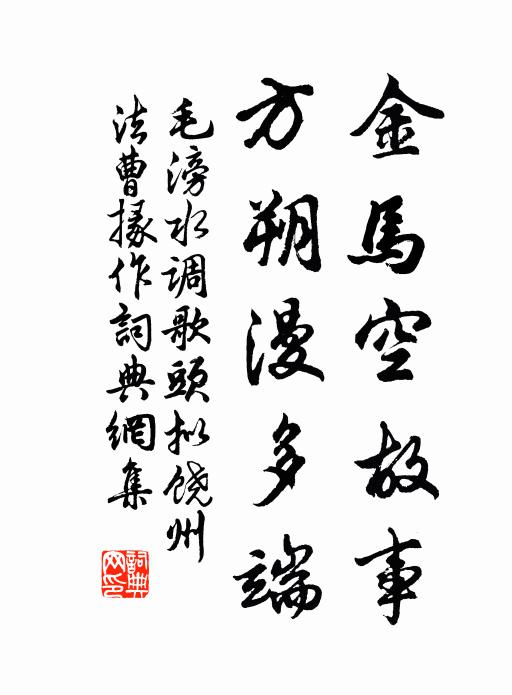 金馬空故事
方朔漫多端
毛滂水调歌頭拟饶州
法曹掾作詞典網集
詞典网印